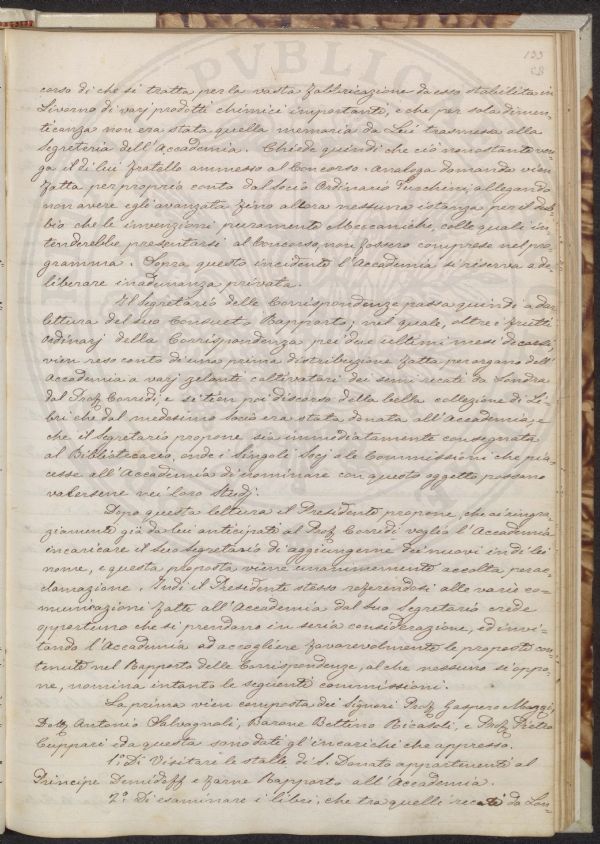 133
68
corso di che si tratta per la vasta fabbricazione da esso stabilita in
Livorno di varj prodotti chimici importanti, e che per sola dimen-
ticanza non era stata quella memoria da Lui trasmessa alla
Segreteria dell'Accademia. Chiede quindi che ciò nonostante ven-
ga il di lui fratello ammesso al Concorso. Analoga domanda vien
fatta per proprio conto dal Socio Ordinario Turchini, allegando
non avere egli avanzata fino allora nessuna istanza per il dub-
bio che le invenzioni puramente Meccaniche, colle quali in-
tenderebbe presentarsi al Concorso, non fossero comprese nel pro-
gramma. Sopra questo incidente l'Accademia si riserva a de-
liberare in adunanza privata.
Il Segretario delle Corrispondenze passa quindi a dar
lettura del suo Consueto Rapporto; nel quale, oltre i frutti
ordinarj della Corrispondenza pei due ultimi mesi decorsi,
vien reso conto di una prima distribuzione fatta per organo dell'
Accademia a varj zelanti coltivatori dei semi recati da Londra
dal Prof. Corridi; e si tien poi discorso della bella collezione di Li-
bri che dal medesimo Socio era stata donata all'Accademia, e
che il Segretario propone sia immediatamente consegnata
al Bibliotecario, onde i Singoli Socj o le Commissioni che pia-
cesse all'Accademia di nominare con questo oggetto possano
valersene nei loro Studj.
Dopo questa lettura il Presidente propone, che ai ringra-
ziamenti già da lui anticipati al Prof. Corridi voglia l'Accademia
incaricare il suo Segretario di aggiungerne dei nuovi in di lei
nome, e questa proposta viene unanimemente accolta per ac-
clamazione. Indi il Presidente stesso referendosi alle varie co-
municazioni fatte all'Accademia dal suo Segretario crede
opportuno che si prendano in seria considerazione, ed invi-
tando l'Accademia ad accogliere favorevolmente le proposte con-
tenute nel Rapporto delle Corrispondenze, al che nessuno si oppo-
ne, nomina intanto le seguenti commissioni.
La prima vien composta dei Signori Prof. Gaspero Mazzi,
Dott. Antonio Salvagnoli, Barone Bettino Ricasoli, e Prof. Pietro
Cuppari ed a questa sono dati gl'incarichi che appresso.
1.º Di Visitare le stalle di S. Donato appartenenti al
Principe Demidoff e farne Rapporto all'Accademia.
2.º Di esaminare i libri, che tra quelli recati da Lon-